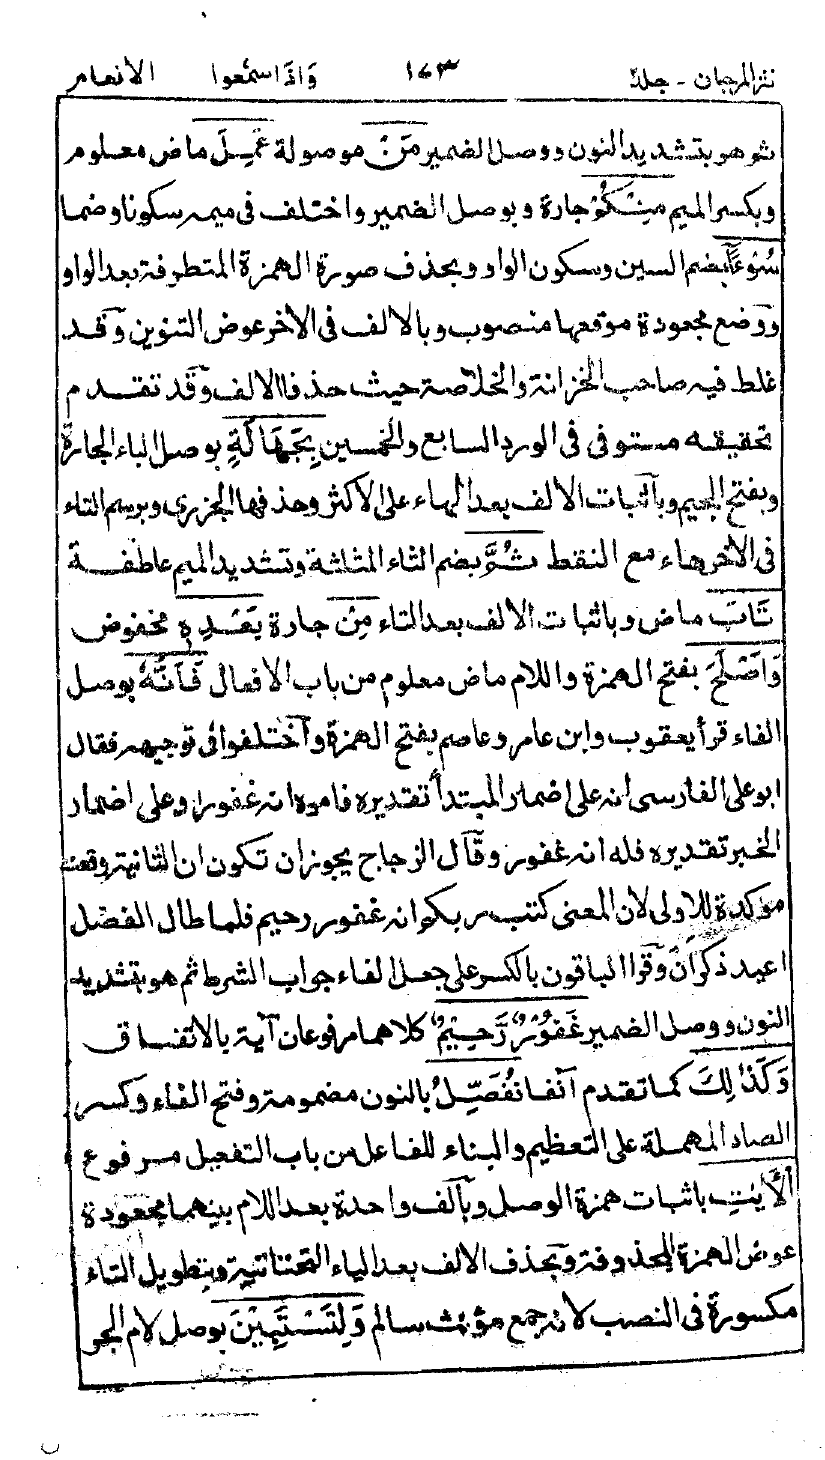 نثر المرجان - جلد ٢ ١٦٣ وَاذا اسمعوا الانعام
ثم هو بتشديد النون ووصل الضمير مَنْ موصولة عَمِلَ ماض معلوم
وبكسر الميم مِنْكُمْ جارة وبوصل الضمير واختلف فى ميمه سكونا وضما
سُوْءًا بضم السين وسكون الواو وبحذف صورة الهمزة المتطرفة بعد الواو
ووضع مجعودة موقعها منصوب وبالالف فى الاخر عوض التنوين وقد
غلط فيه صاحب الخزانة والخلاصة حيث حذفا الالف وقد تقدم
تحقيقه مستوفى فى الورد السابع والخمسين بِجَهَالَةٍ بوصل الباء الجارة
وبفتح الجيم وباثبات الالف بعد الهاء على الاكثر وحذفها الجزرى وبرسم التاء
فى الاخر هاء مع النقط ثُمَّ بضم الثاء المثلثة وتشديد الميم عاطفة
تَابَ ماض وباثبات الالف بعد التاء مِنْ جارة بَعْدِهٖ مخفوض
وَاَصْلَحَ بفتح الهمزة واللام ماض معلوم من باب الافعال فَاَنَّهٗ بوصل
الفاء قرأ يعقوب وابن عامر وعاصم بفتح الهمزة واختلفوا فى توجيهه فقال
ابو على الفارسى انه على اضمار المبتدأ تقديره فامره انه غفور او على اضمار
الخبر تقديره فله انه غفور وقال الزجاج يجوز ان تكون ان الثانية وقعت
موكدة للاولى لان المعنى كتب ربكم انه غفور رحيم فلما طال الفصل
اعيد ذكر ان وقرا الباقون بالكسر على جعل الفاء جواب الشرط ثم هو بتشديد
النون ووصل الضمير غَفُوْرٌ رَّحِيْمٌ كلاهما مرفوعان آية بالاتفاق
وَكَذٰلِكَ كما تقدم آنفا نُفَصِّلُ بالنون مضمومة وفتح الفاء وكسر
الصاد المهملة على التعظيم والبناء للفاعل من باب التفعيل مرفوع
الْاٰيٰتِ باثبات همزة الوصل وبالف واحدة بعد اللام بينهما مجعودة
عوض الهمزة المحذوفة وبحذف الالف بعد الياء التحتانية وبتطويل التاء
مكسورة فى النصب لانه جمع مؤنث سالم وَلِتَسْتَبِيْنَ بوصل لام الجر